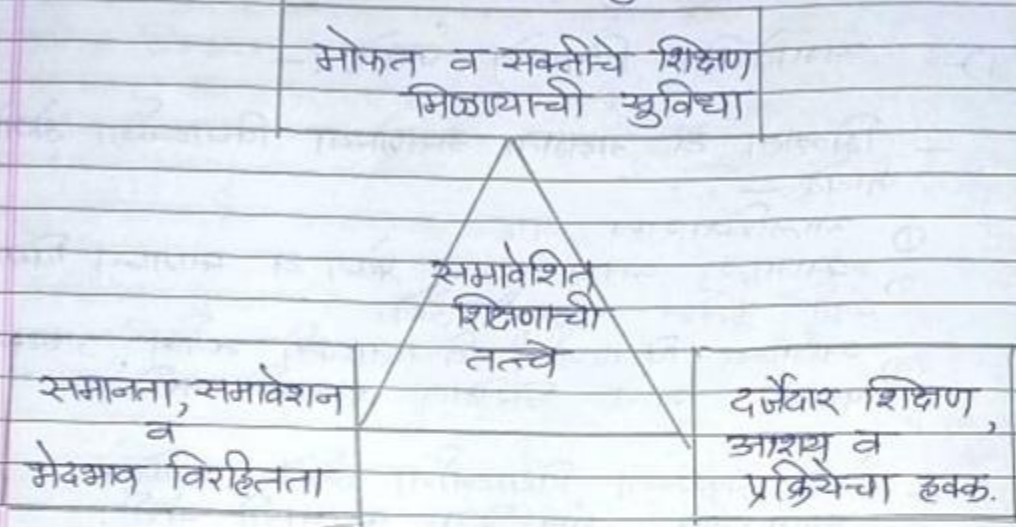 मोफत व सक्तीचे शिक्षण
मिळण्याची सुविधा
समावेशित
शिक्षणाची
तत्त्वे
समानता, समावेशन
व
भेदभाव विरहितता
दर्जेदार शिक्षण,
आशय व
प्रक्रियेचा हक्क.